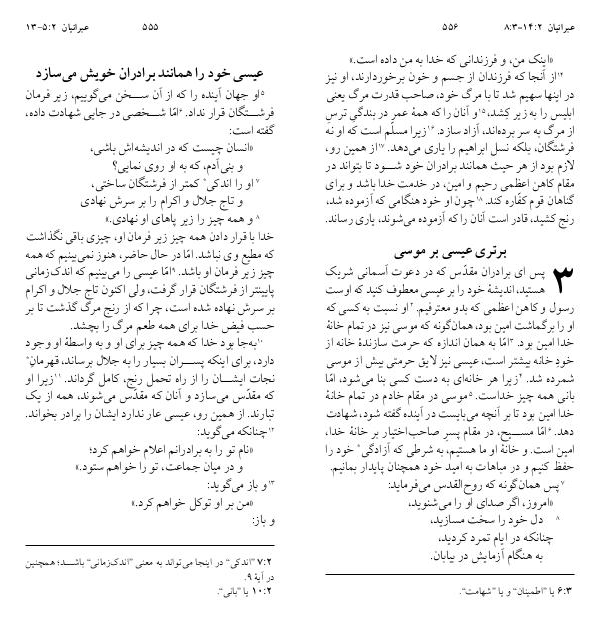 عبرانیان ۵:۲-۱۳
۵۵۵
عیسی خود را همانند برادران خویش می‌سازد
۵او جهان آینده را که از آن سخن می‌گوییم، زیر فرمان
فرشتگان قرار نداد. ۶امّا شخصی در جایی شهادت داده،
گفته است:
«انسان چیست که در اندیشه‌اش باشی،
و بنی‌آدم، که به او روی نمایی؟
۷او را اندکی* کمتر از فرشتگان ساختی،
و تاج جلال و اکرام را بر سرش نهادی
۸و همه چیز را زیر پاهای او نهادی.»
خدا با قرار دادن همه چیز زیر فرمان او، چیزی باقی نگذاشت
که مطیع وی نباشد. امّا در حال حاضر، هنوز نمی‌بینیم که همه
چیز زیر فرمان او باشد. ۹امّا عیسی را می‌بینیم که اندک‌زمانی
پایینتر از فرشتگان قرار گرفت، ولی اکنون تاج جلال و اکرام
بر سرش نهاده شده است، چرا که از رنج مرگ گذشت تا بر
حسب فیض خدا برای همه طعم مرگ را بچشد.
۱۰به‌جا بود خدا که همه چیز برای او و به واسطۀ او وجود
دارد، برای اینکه پسران بسیار را به جلال برساند، قهرمانِ*
نجات ایشان را از راه تحمل رنج، کامل گرداند. ۱۱زیرا او
که مقدّس می‌سازد و آنان که مقدّس می‌شوند، همه از یک
تبارند. از همین رو، عیسی عار ندارد ایشان را برادر بخواند.
۱۲چنانکه می‌گوید:
«نام تو را به برادرانم اعلام خواهم کرد؛
و در میان جماعت، تو را خواهم ستود.»
۱۳و باز می‌گوید:
«من بر او توکل خواهم کرد.»
و باز:
۷:۲ "اندکی" در اینجا می‌تواند به معنی "اندک‌زمانی" باشد؛ همچنین
در آیۀ ۹.
۱۰:۲ یا "بانی".
عبرانیان ۱۴:۲-۸:۳
۵۵۶
«اینک من، و فرزندانی که خدا به من داده است.»
۱۴از آنجا که فرزندان از جسم و خون برخوردارند، او نیز
در اینها سهیم شد تا با مرگ خود، صاحب قدرت مرگ یعنی
ابلیس را به زیر کِشد، ۱۵و آنان را که همۀ عمر در بندگیِ ترس
از مرگ به سر برده‌اند، آزاد سازد. ۱۶زیرا مسلّم است که او نه
فرشتگان، بلکه نسل ابراهیم را یاری می‌دهد. ۱۷از همین رو،
لازم بود از هر حیث همانند برادران خود شود تا بتواند در
مقام کاهن اعظمی رحیم و امین، در خدمت خدا باشد و برای
گناهان قوم کفّاره کند. ۱۸چون او خود هنگامی که آزموده شد،
رنج کشید، قادر است آنان را که آزموده می‌شوند، یاری رساند.
برتری عیسی بر موسی
۳ پس ای برادران مقدّس که در دعوت آسمانی شریک
هستید، اندیشۀ خود را بر عیسی معطوف کنید که اوست
رسول و کاهن اعظمی که بدو معترفیم. ۲او نسبت به کسی که
او را برگماشت امین بود، همان‌گونه که موسی نیز در تمام خانۀ
خدا امین بود. ۳امّا به همان اندازه که حرمت سازندۀ خانه از
خودِ خانه بیشتر است، عیسی نیز لایق حرمتی بیش از موسی
شمرده شد. ۴زیرا هر خانه‌ای به دست کسی بنا می‌شود، امّا
بانی همه چیز خداست. ۵موسی در مقام خادم در تمام خانۀ
خدا امین بود تا بر آنچه می‌بایست در آینده گفته شود، شهادت
دهد. ۶امّا مسیح، در مقام پسرِ صاحب‌اختیار بر خانۀ خدا،
امین است. و خانۀ او ما هستیم، به شرطی که آزادگی* خود را
حفظ کنیم و در مباهات به امید خود همچنان پایدار بمانیم.
۷پس همان‌گونه که روح‌القدس می‌فرماید:
«امروز، اگر صدای او را می‌شنوید،
۸دل خود را سخت مسازید،
چنانکه در ایام تمرد کردید،
به هنگام آزمایش در بیابان.
۶:۳ یا "اطمینان" و یا "شهامت".